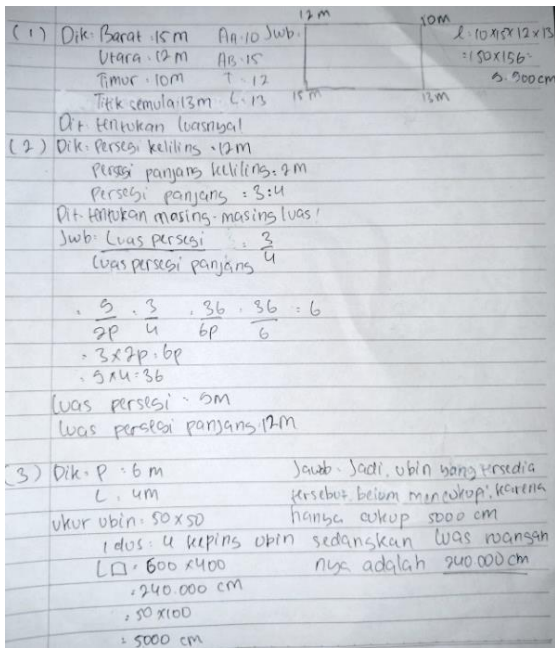 (1) Dik: Barat . 15 m AA. 10 Jwb.
Utara . 12 m AB. 15
Timur . 10m T . 12
Titik semula : 13 m L . 13
12 m 10m
15 m 13m
L . 10 x 15 x 12 x 13
= 150 x 156
Dit. tentukan luasnya!
(2) Dik: Persegi keliling . 12 m
persegi panjang keliling : 2m
Persegi panjang : 3:4
Dit. tentukan masing-masing luas!
Jwb: Luas persegi : 3
Luas persegi panjang 4
. 9 . 3 . 36 . 36 = 6
2p 4 6p 6
. 3 x 2p . 6p
. 9 x 4 = 36
Luas persegi . 9m
Luas persegi panjang . 12m
(3) Dik. P : 6 m
L . 4m
ukur ubin : 50 x 50
1 dus : 4 keping ubin
L□ . 600 x 400
. 240.000 cm
. 50 x 100
: 5000 cm
Jawab. Jadi, ubin yang tersedia
tersebut belum mencukupi, karena
hanya cukup 5000 cm
sedangkan luas ruangan
nya adalah 240.000 cm